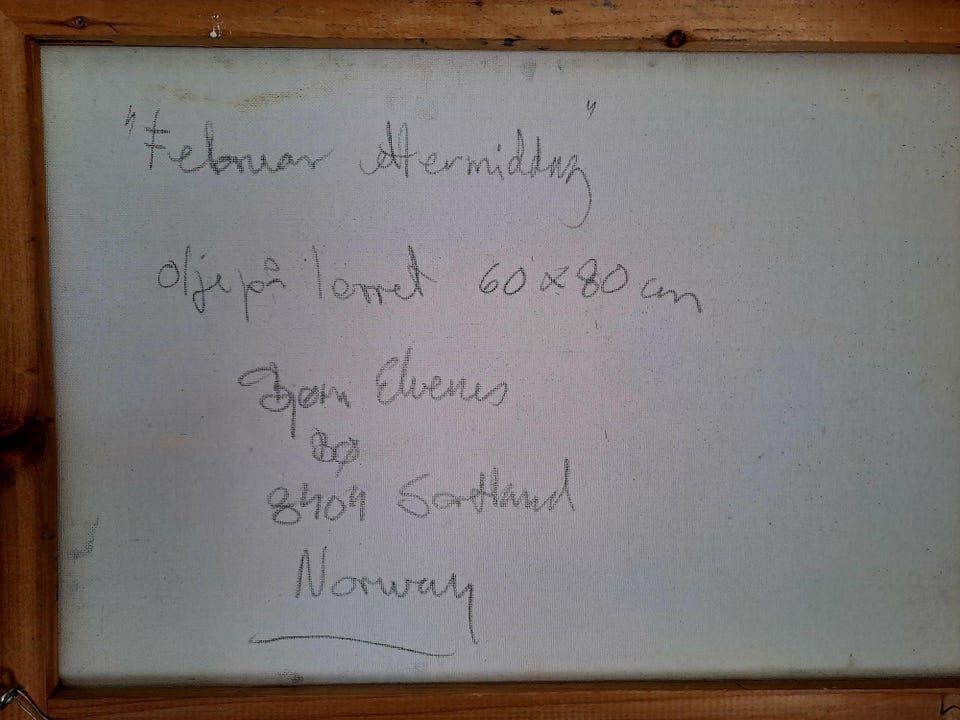 "Februar ettermiddag"
olje på lerret 60 x 80 cm
Bjørn Elvenes
Bø
8404 Sortland
Norway